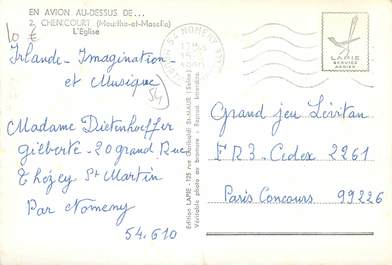 EN AVION AU-DESSUS DE...
2. CHENICOURT (Meurthe-et-Moselle)
L'Eglise
10 €
Irlande - Imagination -
et Musique
54
Madame Dietenhoeffer
Gilberte - 20 grand Rue
Thézey St Martin
Par Nomeny
54.610
54 NOMENY
Edition LAPIE - 125 rue Garibaldi St-MAUR (Seine)
Véritable photo au bromure - Reprod. Interdite
LAPIE
SERVICE
AERIEN
Grand jeu Lévitan
FR3 - Cedex 2261
Paris Concours 99226